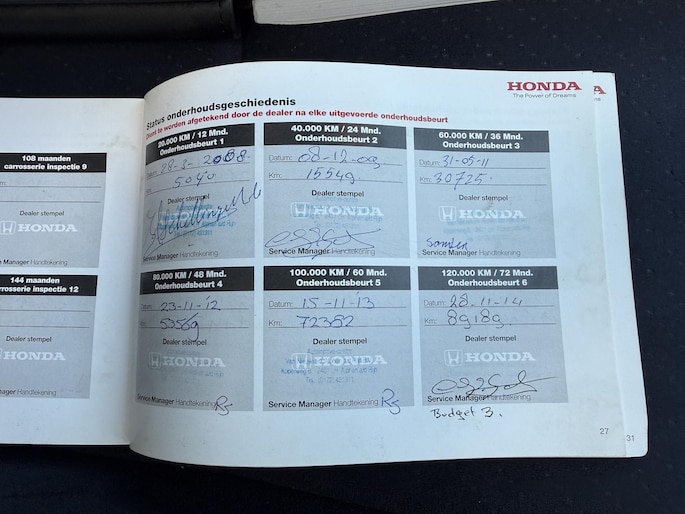 HONDA
The Power of Dreams
Status onderhoudsgeschiedenis
Dient te worden afgetekend door de dealer na elke uitgevoerde onderhoudsbeurt
108 maanden
carrosserie inspectie 9
um:
Dealer stempel
HONDA
Manager Handtekening
144 maanden
rrosserie inspectie 12
Dealer stempel
HONDA
anager Handtekening
20.000 KM / 12 Mnd.
Onderhoudsbeurt 1
Datum: 28-3-2008
Km: 5040
Dealer stempel
HONDA
Service Manager Handtekening
40.000 KM / 24 Mnd.
Onderhoudsbeurt 2
Datum: 08-12-09
Km: 15549
Dealer stempel
HONDA
Service Manager Handtekening
60.000 KM / 36 Mnd.
Onderhoudsbeurt 3
Datum: 31-05-11
Km: 30725
Dealer stempel
HONDA
Service Manager Handtekening
80.000 KM / 48 Mnd.
Onderhoudsbeurt 4
Datum: 23-11-'12
Km: 53569
Dealer stempel
HONDA
Service Manager Handtekening
RS
100.000 KM / 60 Mnd.
Onderhoudsbeurt 5
Datum: 15-11-'13
Km: 72352
Dealer stempel
HONDA
Service Manager Handtekening
RS
120.000 KM / 72 Mnd.
Onderhoudsbeurt 6
Datum: 28-11-14
Km: 89189
Dealer stempel
HONDA
Service Manager Handtekening
Budget 3.
27
31